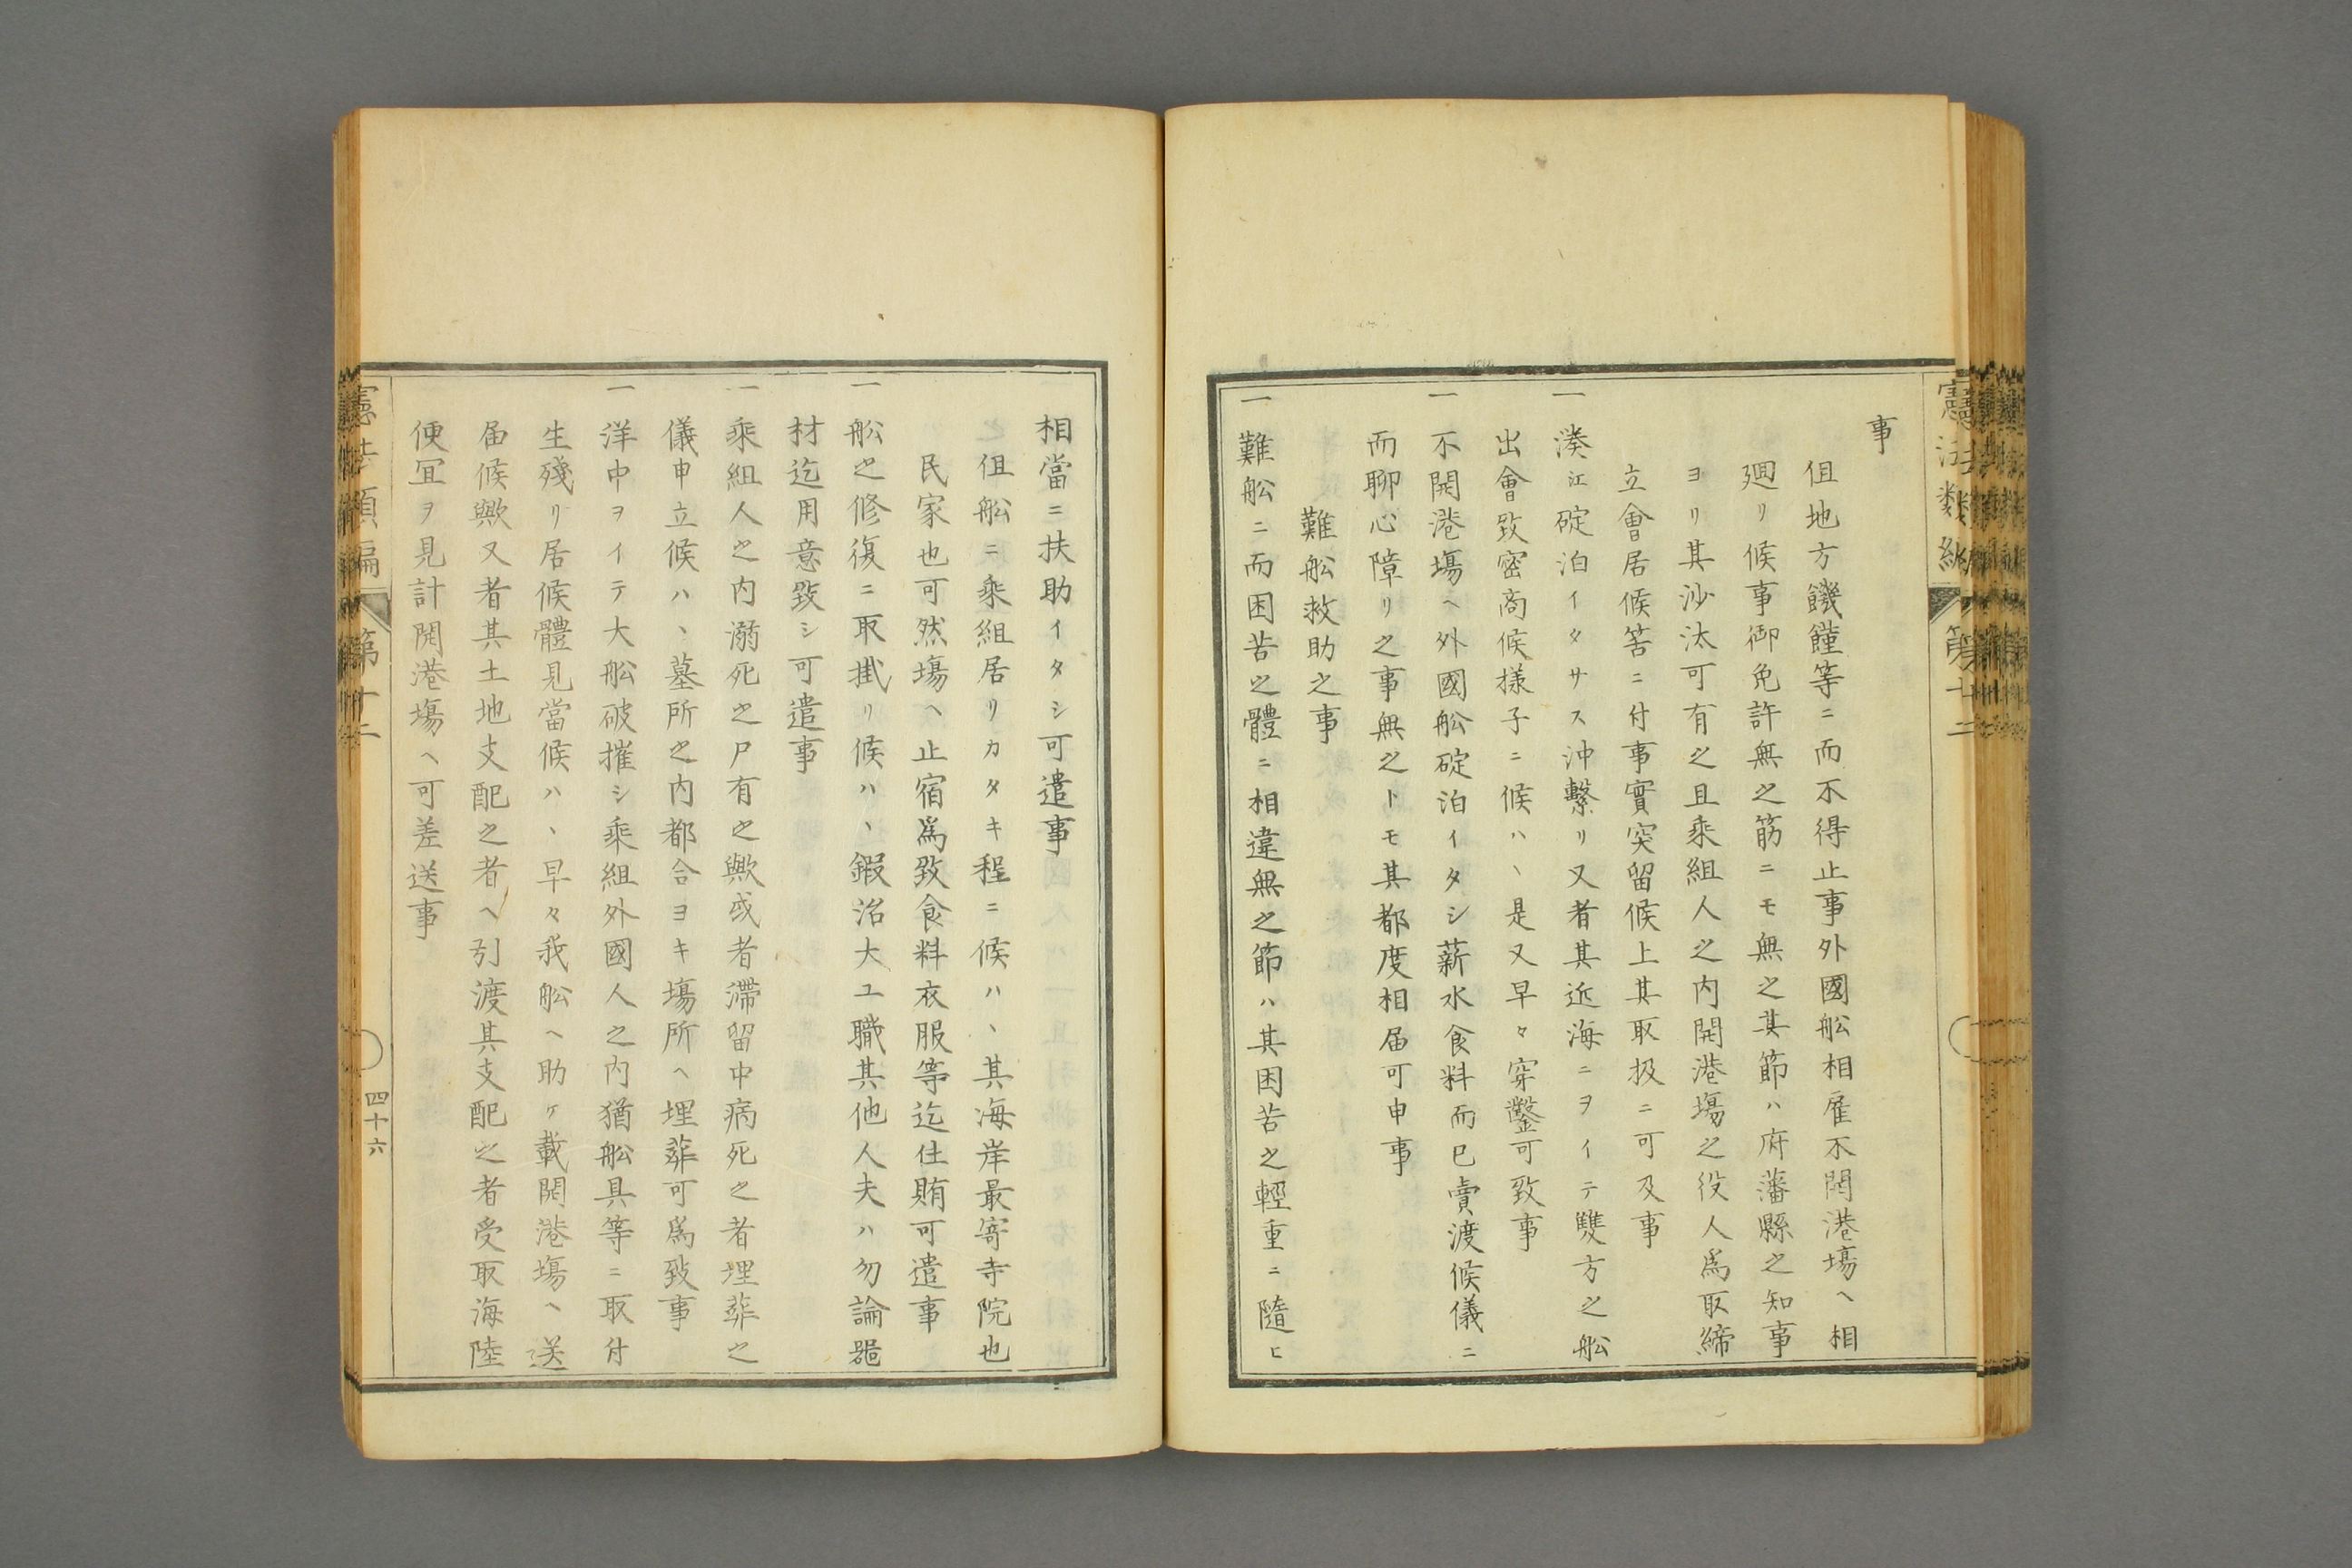 憲法類編 第十二
事
但地方饑饉等ニ而不得止事外國舩相雇不開港塲ヘ相
廻リ候事御免許無之筋ニモ無之其節ハ府藩縣之知事
ヨリ其沙汰可有之且乘組人之内開港塲之役人爲取締
立會居候筈ニ付事實突留候上其取扱ニ可及事
一 湊江碇泊イタサス沖繋リ又者其近海ニヲイテ雙方之舩
出會致密商候樣子ニ候ハヽ是又早々穿鑿可致事
一 不開港塲ヘ外國舩碇泊イタシ薪水食料而已賣渡候儀ニ
而聊心障リ之事無之トモ其都度相届可申事
難舩救助之事
一 難舩ニ而困苦之體ニ相違無之節ハ其困苦之輕重ニ隨ヒ
相當ニ扶助イタシ可遣事
但舩ニ乘組居リカタキ程ニ候ハヽ其海岸最寄寺院也
民家也可然塲ヘ止宿爲致食料衣服等迄仕賄可遣事
一 舩之修復ニ取掛リ候ハヽ鍜冶大工職其他人夫ハ勿論器
材迄用意致シ可遣事
一 乘組人之内溺死之尸有之歟或者滯留中病死之者埋葬之
儀申立候ハヽ墓所之内都合ヨキ塲所ヘ埋葬可爲致事
一 洋中ヲイテ大舩破摧シ乘組外國人之内猶舩具等ニ取付
生殘リ居候體見當候ハヽ早々我舩ヘ助ケ載開港塲ヘ送
届候歟又者其土地支配之者ヘ引渡其支配之者受取海陸
便冝ヲ見計開港塲ヘ可差送事
憲法類編 第十二
四十六